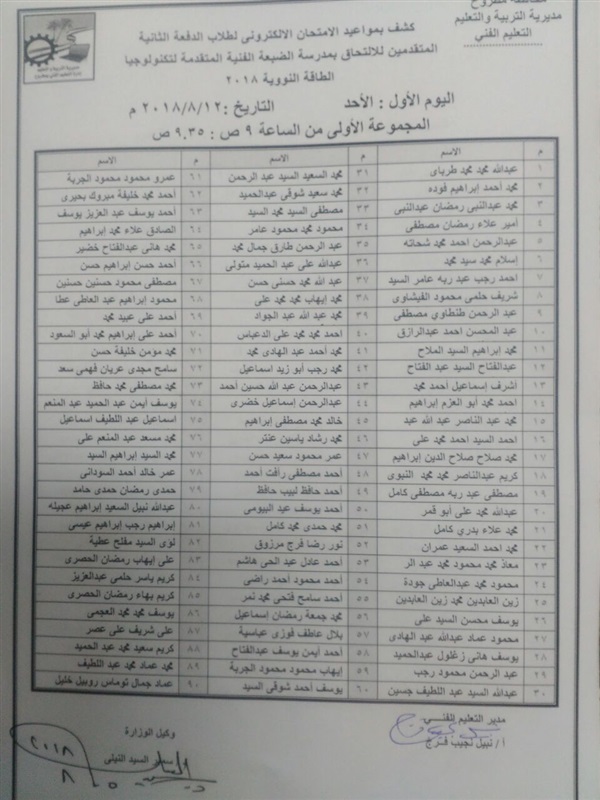 محافظة مطروح
مديرية التربية والتعليم
التعليم الفني
كشف بمواعيد الامتحان الالكترونى لطلاب الدفعة الثانية
المتقدمين للالتحاق بمدرسة الضبعة الفنية المتقدمة لتكنولوجيا
الطاقة النووية ٢٠١٨
اليوم الأول : الأحد التاريخ : ٢٠١٨/٨/١٢ م
المجموعة الأولى من الساعة ٩ ص : ٩.٣٥ ص
م الاسم م الاسم م الاسم
١ عبدالله محمد محمد طرباى ٣١ محمد السعيد السيد عبد الرحمن ٦١ عمرو محمود محمود الجرية
٢ محمد أحمد إبراهيم فوده ٣٢ محمد سعيد شوقى عبدالحميد ٦٢ أحمد محمد خليفة مبروك بحيرى
٣ محمد عبدالنبى رمضان عبدالنبى ٣٣ مصطفى السيد محمد السيد ٦٣ أحمد يوسف عبد العزيز يوسف
٤ أمير علاء رمضان مصطفى ٣٤ محمود محمد محمود عامر ٦٤ الصادق علاء محمد إبراهيم
٥ عبدالرحمن احمد محمد شحاته ٣٥ عبد الرحمن طارق جمال محمد ٦٥ محمد هانى عبدالفتاح خضير
٦ إسلام محمد سيد محمد ٣٦ عبدالله على عبد الحميد متولى ٦٦ أحمد حسن إبراهيم حسن
٧ احمد رجب عبد ربه عامر السيد ٣٧ عبد الله محمد حسنى حسن ٦٧ مصطفى محمود حسنين حسنين
٨ شريف حلمى محمود الفيشاوى ٣٨ محمد إيهاب محمد محمد على ٦٨ محمود إبراهيم عبد العاطى عطا
٩ عبد الرحمن طنطاوى مصطفى ٣٩ محمد عبد الله عبد الجواد ٦٩ أحمد على عبيد محمد
١٠ عبد المحسن احمد عبدالرازق ٤٠ احمد محمد محمد على الدعباس ٧٠ أحمد على إبراهيم محمد أبو السعود
١١ محمد إبراهيم السيد الملاح ٤١ محمد أحمد عبد الهادى محمد ٧١ محمد مومن خليفة حسن
١٢ عبدالفتاح السيد عبد الفتاح ٤٢ محمد رجب أبو زيد اسماعيل ٧٢ سامح مجدى عريان فهمى سعد
١٣ اشرف إسماعيل أحمد محمد ٤٣ عبدالرحمن عبد الله حسين أحمد ٧٣ محمد مصطفى محمد حافظ
١٤ محمد أحمد أبو العزم إبراهيم ٤٤ عبدالرحمن إسماعيل خضرى ٧٤ يوسف أيمن عبد الحميد عبد المنعم
١٥ محمد عبد الناصر عبد الله عيد ٤٥ خالد محمد مصطفى إبراهيم ٧٥ اسماعيل عبد اللطيف اسماعيل
١٦ احمد السيد احمد محمد على ٤٦ محمد رشاد ياسين عنتر ٧٦ محمد مسعد عبد المنعم على
١٧ محمد صلاح صلاح الدين إبراهيم ٤٧ عمر محمود سعيد حسن ٧٧ محمد السيد إبراهيم السيد
١٨ كريم عبدالناصر محمد محمد النبوى ٤٨ أحمد مصطفى رأفت أحمد ٧٨ عمر خالد أحمد السودانى
١٩ مصطفى عبد ربه مصطفى كامل ٤٩ أحمد حافظ لبيب حافظ ٧٩ حمدى رمضان حمدى حامد
٢٠ عبدالله محمد على أبو قمر ٥٠ أحمد يوسف عيد البيومى ٨٠ عبدالله نبيل السعيد إبراهيم عجيله
٢١ محمد علاء بدري كامل ٥١ محمد حمدى محمد كامل ٨١ إبراهيم رجب إبراهيم عيسى
٢٢ محمد احمد السعيد عمران ٥٢ نور رضا فرج مرزوق ٨٢ لؤى السيد مفلح عطية
٢٣ معاذ محمد محمود محمد عبد الر ٥٣ أحمد عادل عبد الحى هاشم ٨٣ على إيهاب رمضان الحصرى
٢٤ محمود محمد عبدالعاطى جودة ٥٤ أحمد محمود أحمد راضى ٨٤ كريم ياسر حلمى عبدالعزيز
٢٥ زين العابدين محمد زين العابدين ٥٥ أحمد سامح فتحى محمد نمر ٨٥ كريم بهاء رمضان الحصرى
٢٦ يوسف محسن السيد على ٥٦ محمد جمعة رمضان إسماعيل ٨٦ يوسف محمد محمد العجمى
٢٧ محمود عماد عبدالله عبد الهادى ٥٧ بلال عاطف فوزى عباسية ٨٧ على شريف على عصر
٢٨ يوسف هانى زغلول عبدالحميد ٥٨ أحمد أيمن يوسف عبدالفتاح ٨٨ كريم سعيد محمد عبد الحميد
٢٩ عبد الرحمن محمود رجب ٥٩ إيهاب محمود محمود الجرية ٨٩ محمد عماد محمد عبد اللطيف
٣٠ عبدالله السيد عبد اللطيف حسين ٦٠ يوسف أحمد شوقى السيد ٩٠ عماد جمال توماس روبيل خليل
مدير التعليم الفني وكيل الوزارة
أ/ نبيل نجيب فرج السيد النيلى
٢٠١٨